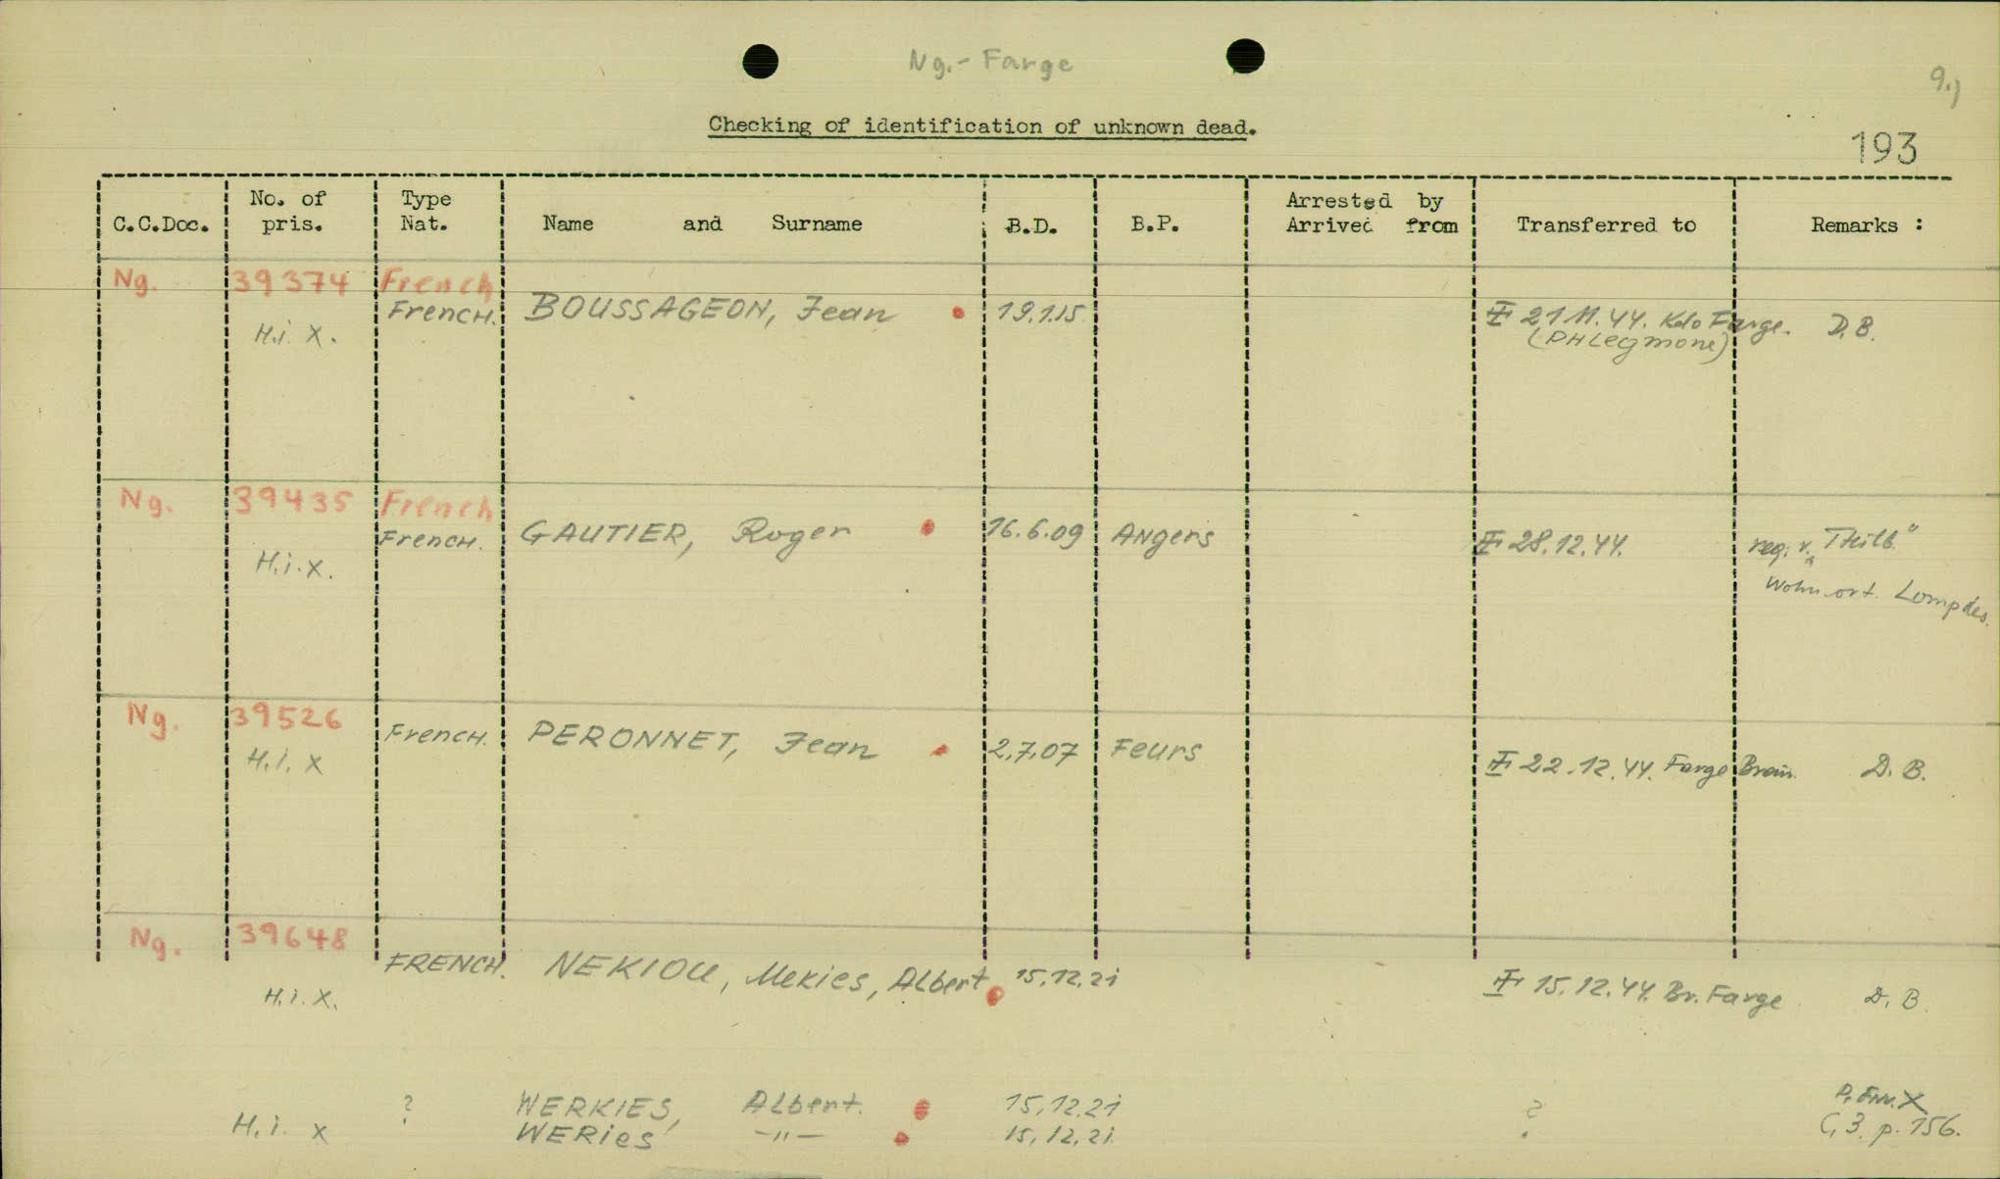 Ng.- Farge
9.)
Checking of identification of unknown dead.
193
C.C.Doc. No. of pris. Type Nat. Name and Surname B.D. B.P. Arrested by Arrived from Transferred to Remarks :
Ng. 39374 French
French. BOUSSAGEON, Jean 19.1.15 21.11.44. Kdo Farge. D.B.
H.i. X. (PHLegmone)
Ng. 39435 French
French. GAUTIER, Roger 16.6.09 Angers 28.12.44. reg. v. "THilb."
H.i.X. Wohnort
Ng. 39526
French. PERONNET, Jean 2.7.07 Feurs 22.12.44. Farge D. B.
H.i. X
Ng. 39648
FRENCH. NEKIOU, Mekies, Albert 15.12.21 15.12.44. Br. Farge D. B.
H.i.X.
? WERKIES, Albert. 15.12.21 ?
H.i. X WERies -"- 15.12.21. C, 3. p. 156.